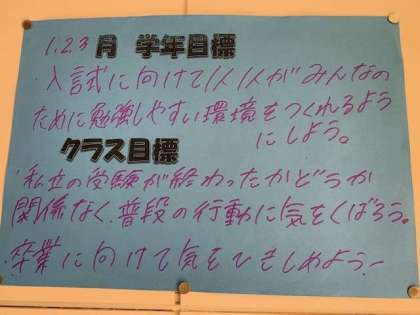 1.2.3月 学年目標
・入試に向けて1人1人がみんなの
ために勉強しやすい環境をつくれるよう
にしよう。
クラス目標
・私立の受験が終わったかどうか
関係なく、普段の行動に気をくばろう。
・卒業に向けて気をひきしめよう!